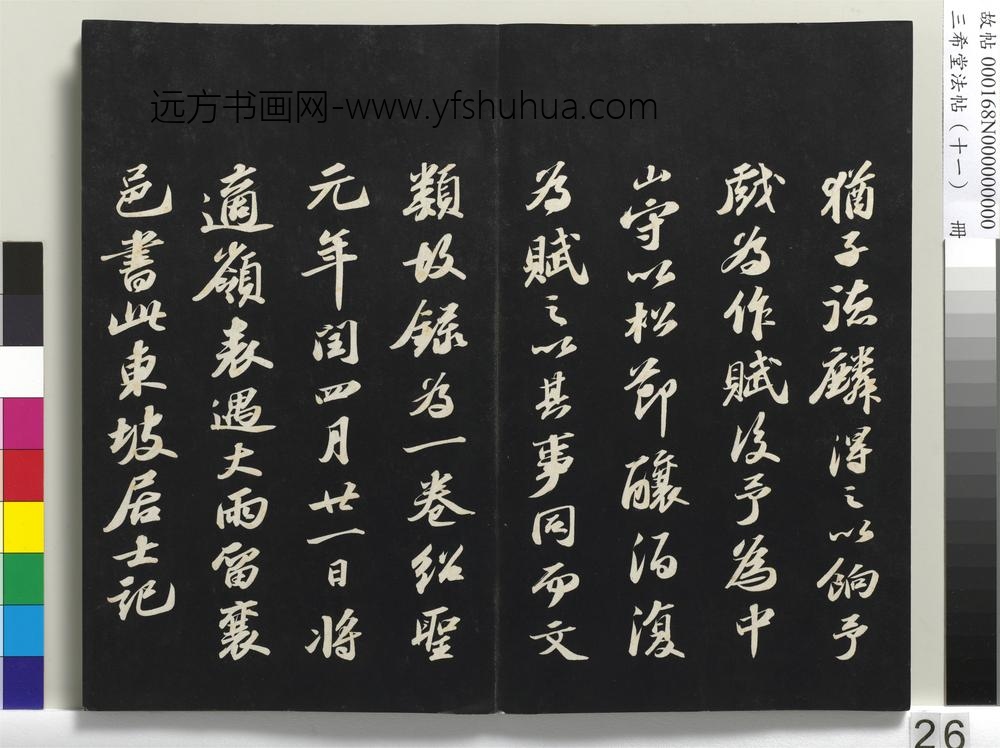 猶子德麟得之以餉予
戲為作賦後予為中
山守以松節釀酒復
為賦之以其事同而文
類故錄為一卷紹聖
元年閏四月廿一日將
適嶺表遇大雨留襄
邑書此東坡居士記
远方书画网-www.yfshuhua.com
故帖 000168N000000000
三希堂法帖（十一） 冊
26